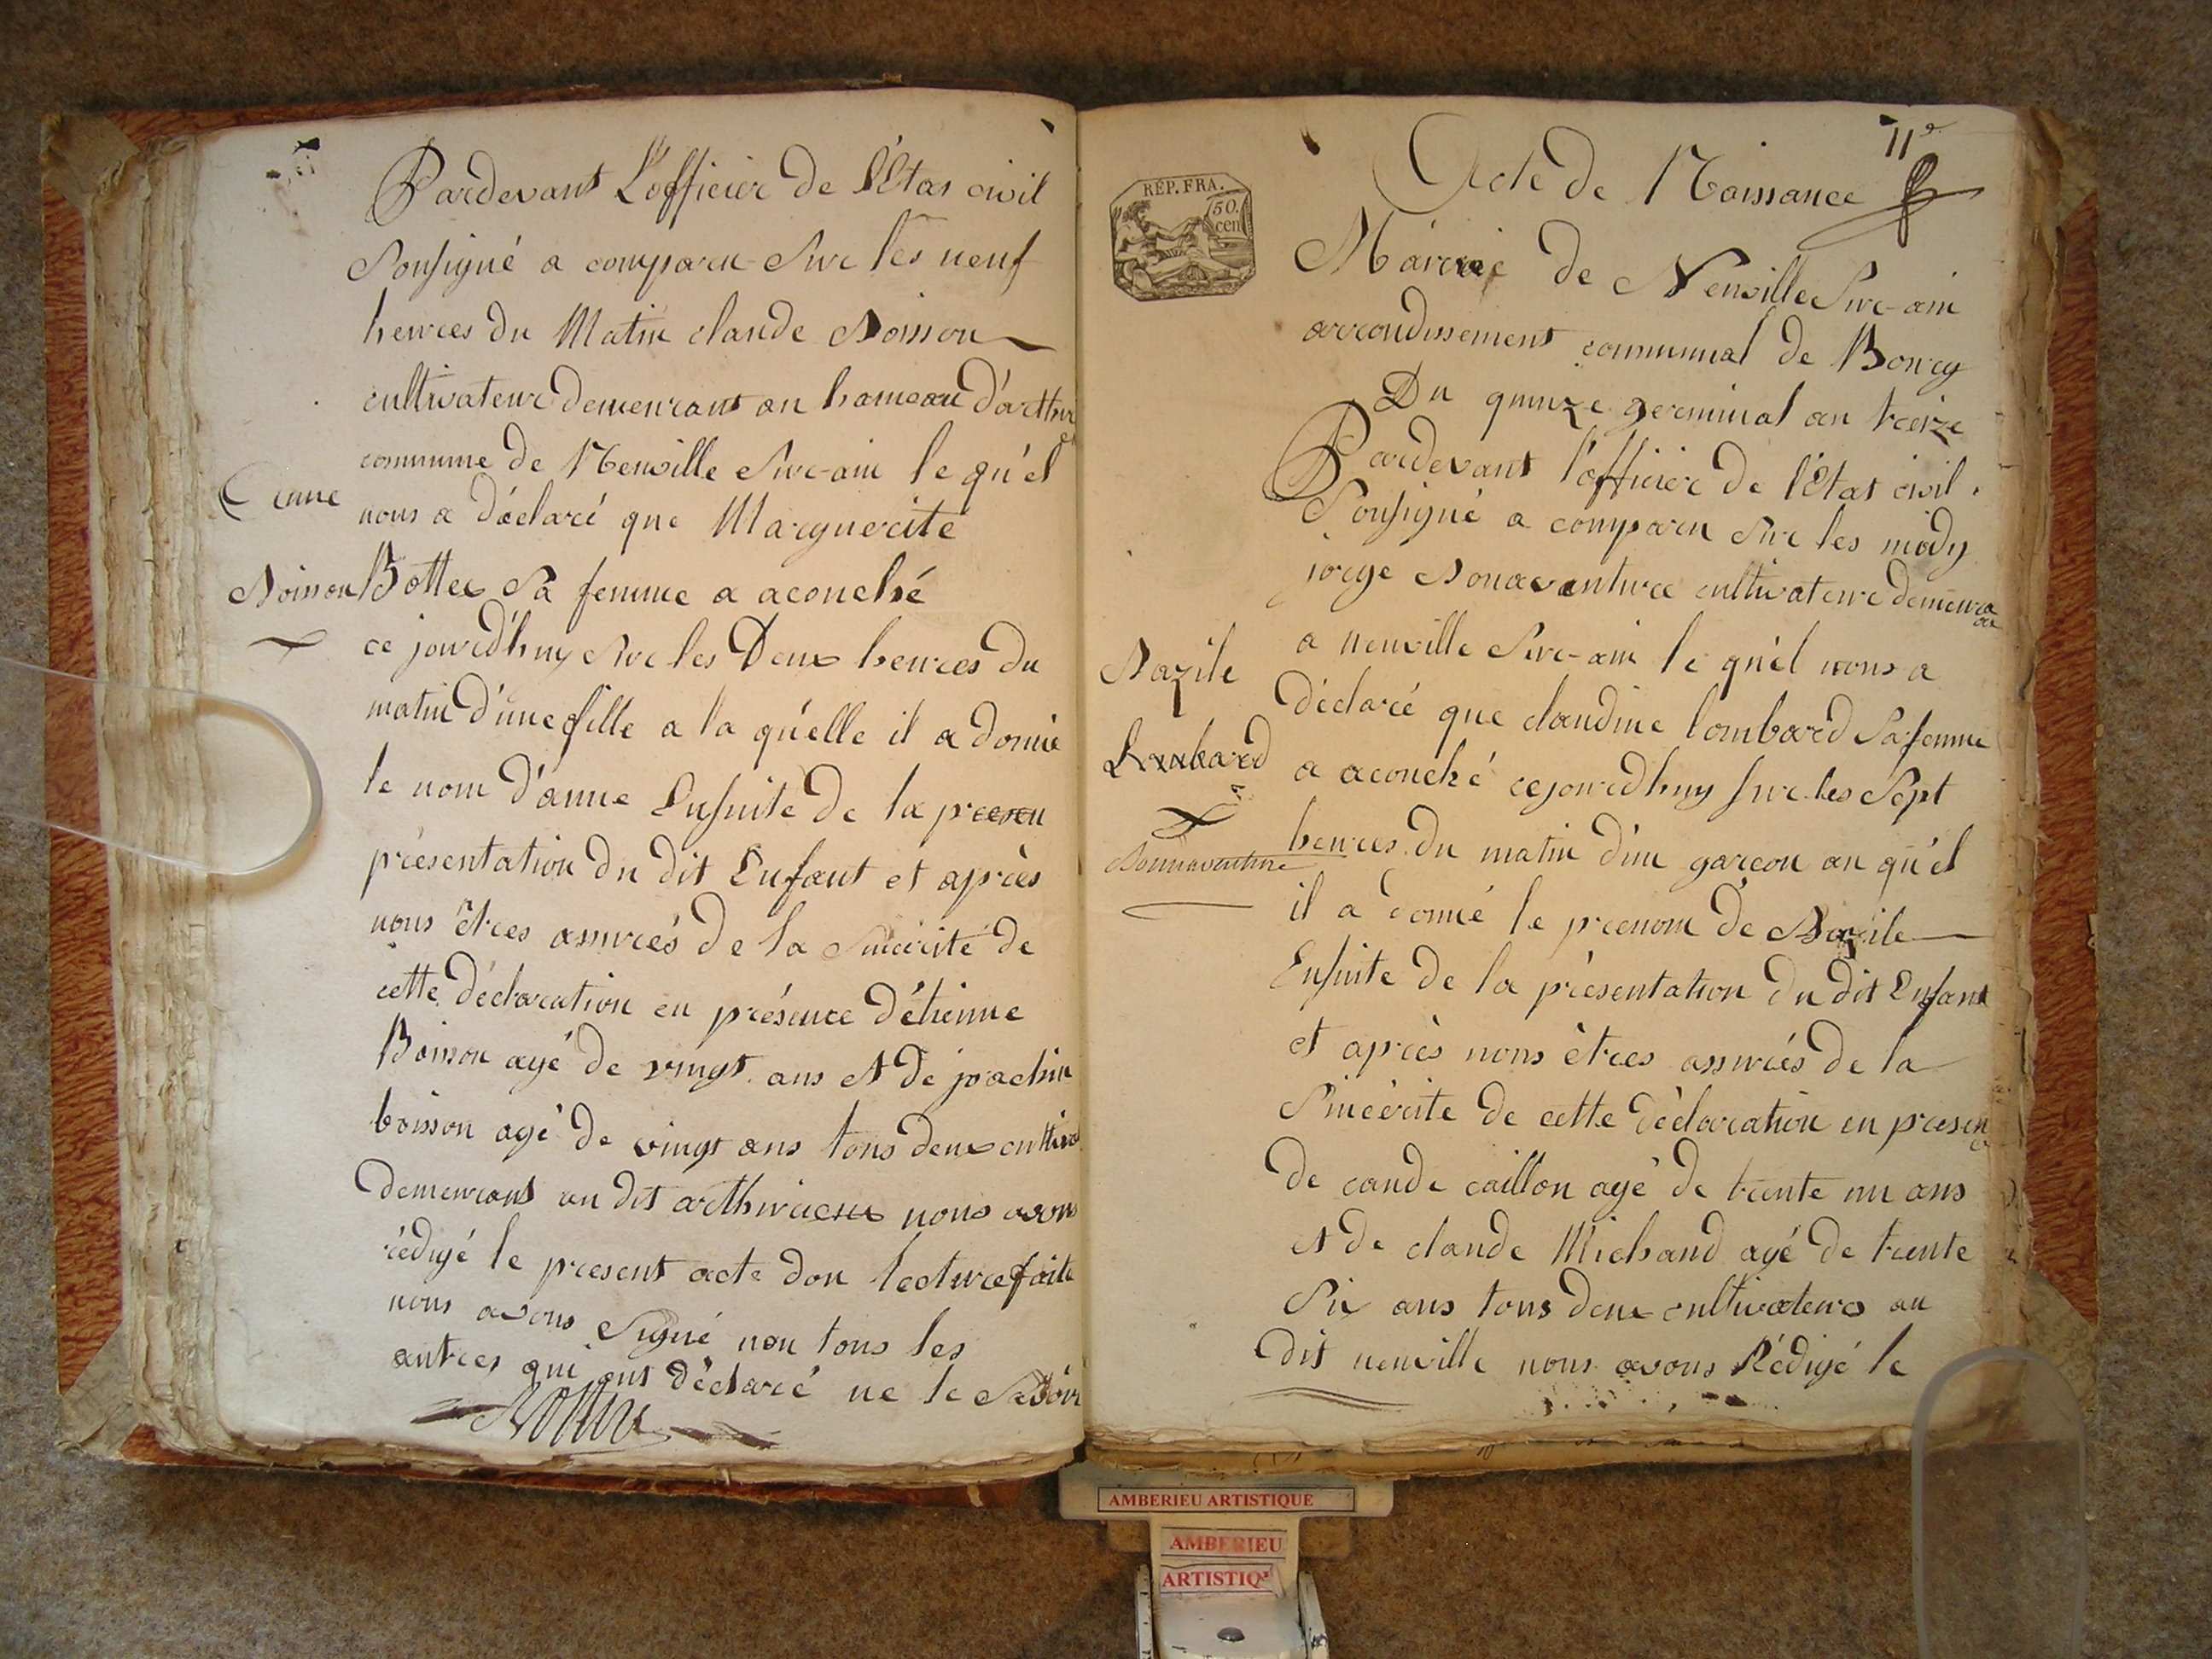 Pardevant L'officier de l'Etat civil
Sousigné a comparu Sur les neuf
heures du Matin claude Boisson
cultivateur demeurant au hameau d'arthur
commune de Neuville Sur-ain le qu'el
Anne
nous a déclaré que Marguerite
Boisson
Bottex Sa femme a acouché
ce jourd'huy Sur les Deux heures du
matin d'une fille a la qu'elle il a donné
le nom d'anne Ensuite de la presen
présentation du dit Enfant et après
nous êtres assurés de la Sincérité de
cette déclaration en présence d'étienne
Boisson agé de vingt ans et de joachin
boisson agé de vingt ans tous deux cultivat
demeurant au dit arthurieux nous avons
rédigé le present acte don lecture faite
nous avons Signé non tous les
autres qui ont déclaré ne le Savoir
11e
Acte de Naissance
RÉP. FRA.
50. cen
Mairie de Neuville Sur-ain
arrondissement communal de Bourg
Du quinze germinal an treize
Pardevant l'officier de l'Etat civil
Sousigné a comparu Sur les midy
jorge Bonaventure cultivateur demeura
a neuville Sur-ain le qu'el nous a
Bazile
déclaré que claudine lombard Sa femme
Lombard
a acouché cejourdhuy sur les Sept
heures du matin d'un garcon au qu'el
Bonnaventure
il a donné le prenom de Bazile
Ensuite de la présentation du dit Enfant
et après nous êtres assurés de la
Sincérite de cette déclaration en presen
ce
de caude caillon agé de trente un ans
et de claude Michaud agé de trente
Six ans tous deux cultivateurs au
dit neuville nous avons Rédigé le
AMBERIEU ARTISTIQUE
AMBERIEU
ARTISTIQ